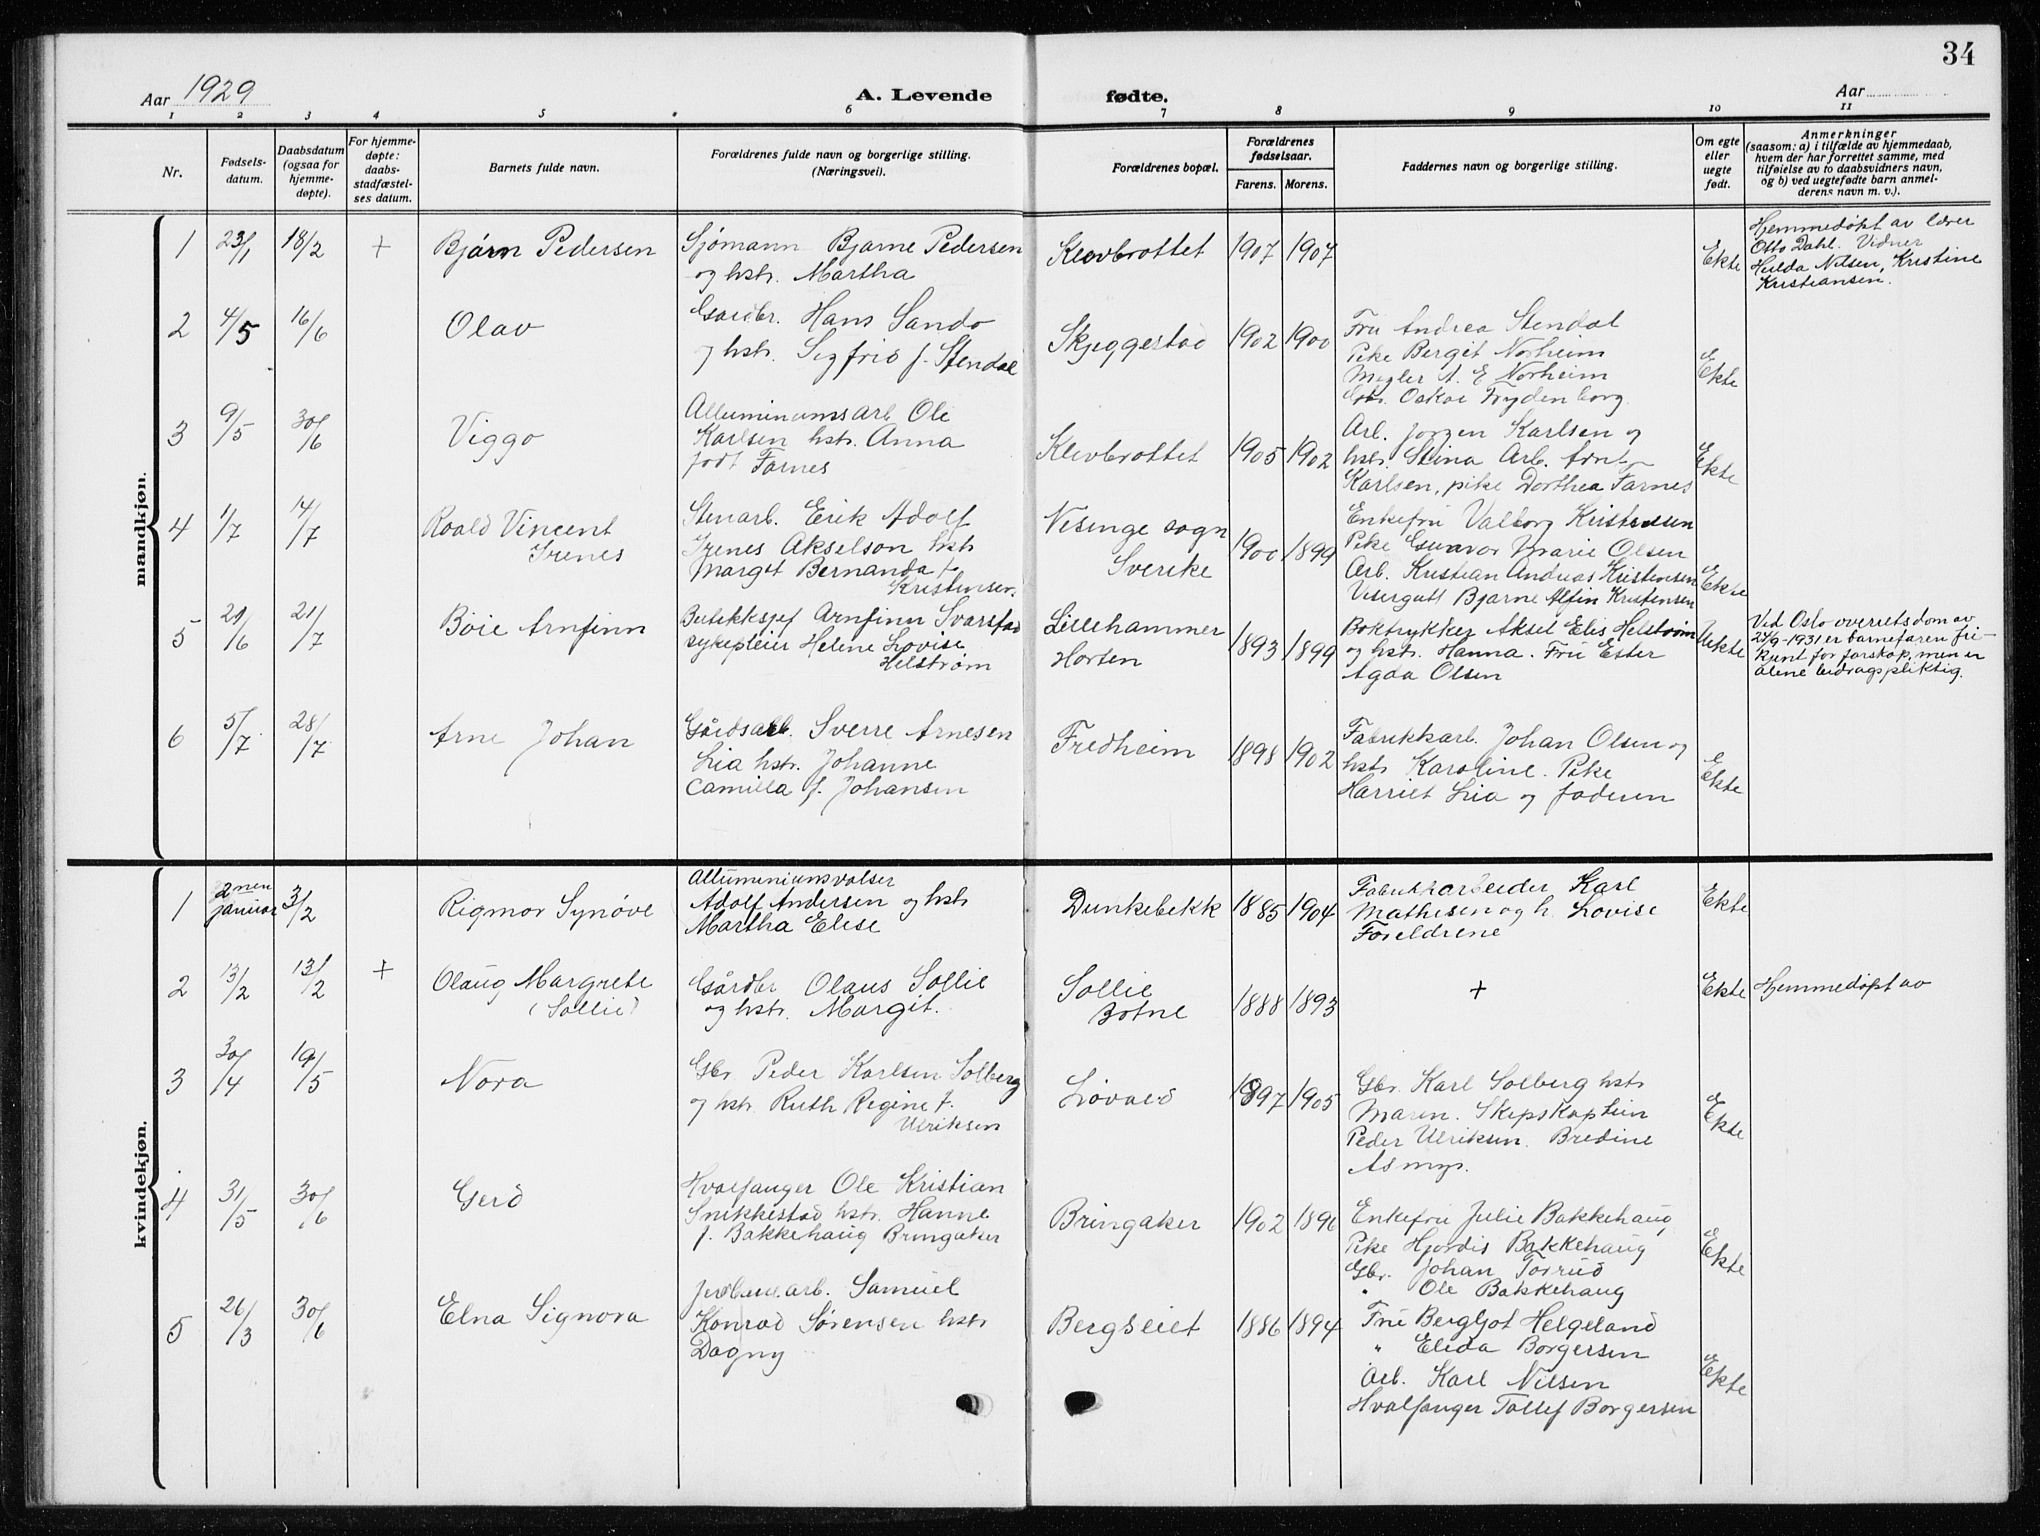 34
Aar 1929
A. Levende fødte.
Aar
1 2 3 4 5 6 7 8 9 10 11
Nr.
Fødsels-
datum.
Daabsdatum
(ogsaa for
hjemme-
døpte).
For hjemme-
døpte:
daabs-
stadfæstel-
ses datum.
Barnets fulde navn.
Forældrenes fulde navn og borgerlige stilling.
(Næringsvei).
Forældrenes bopæl.
Forældrenes
fødselsaar.
Farens. Morens.
Faddernes navn og borgerlige stilling.
Om egte
eller
uegte
født.
Anmerkninger
(saasom: a) i tilfælde av hjemmedaab,
hvem der har forrettet samme, med
tilføielse av to daabsvidners navn,
og b) ved uegtefødte barn anmel-
derens navn m. v.).
mandkjøn.
1 23/1 18/2 + Bjørn Pedersen
Sjömann Bjarne Pedersen
og hstr. Martha
Klevbrottet 1907 1907
Ekte
Hjemmedöpt av lærer
Otto Dahl. Vidner
Hulda Nilsen, Kristine
Kristiansen.
2 4/5 16/6 Olav
Gaardbr. Hans Sando
og hstr. Sigfrid f. Stendal
Skjeggestad 1902 1900
Fru Andrea Stendal
Pike Bergit Norheim
Megler A. E Norheim
Gbr. Oskar Frydenborg.
Ekte
3 9/5 30/6 Viggo
Alluminiumsarb. Ole
Karlsen hstr. Anna
født Farnes
Klevbrottet 1905 1902
Arb. Jørgen Karlsen og
hstr. Stina Arb. Arnt
Karlsen, pike Dorthea Farnes
Ekte
4 1/7 14/7 Roald Vincent
Irenes
Stenarb. Erik Adolf
Irenes Akselson hstr
Margit Bernanda f.
Kristensen.
Visinge sogn
Sverike
1900 1899
Enkefru Valborg Kristensen
Pike Gunvor Marie Olsen
Arb. Kristian Andreas Kristensen
Visergutt Bjarne Alfin Kristensen
Ekte
5 29/6 21/7 Böie Arnfinn
Butikksjef Arnfinn Svarstad
sykepleier Helene Lovise
Helström
Lillehammer
Horten
1893 1899
Boktrykker Aksel Elis Helström
og hstr. Hanna. Fru Ester
Agda Olsen
Uekte
Ved Oslo overretsdom av
24/9-1931 er barnefaren fri-
kjent for farskap, men er
alene bidragspliktig.
6 5/7 28/7 Arne Johan
Gårdsarb. Sverre Arnesen
Lia hstr. Johanne
Camilla f. Johansen
Fredheim 1898 1902
Fabrikkarb. Johan Olsen og
hstr Karoline. Pike
Harriet Lia og faderen
Ekte
kvindekjøn.
1 2nen
januar 3/2 Rigmor Synöve
Alluminiumsvalser
Adolf Andersen og hstr
Martha Elise
Dunkebekk 1885 1904
Fabrikkarbeider Karl
Mathisen og h. Lovise
Foreldrene
Ekte
2 13/2 13/2 + Olaug Margrete
(Sollie)
Gårdbr Olaus Sollie
og hstr. Margit.
Sollie
Botne
1888 1893 + Ekte Hjemmedöpt av
3 30/4 19/5 Nora
Gbr. Peder Karlsen Solberg
og hstr. Ruth Regine f.
Ulriksen
Lövald 1897 1905
Gbr. Karl Solberg hstr
Maren. Skipskaptein
Peder Ulriksen. Bredine
Asmyr.
Ekte
4 31/5 30/6 Gerd
Hvalfanger Ole Kristian
Snekkestad hstr. Hanne
f. Bakkehaug Bringaker
Bringaker 1902 1896
Enkefru Julie Bakkehaug
Pike Hjördis Bakkehaug
Gbr. Johan Torrud
" Ole Bakkehaug
Ekte
5 26/3 30/6 Elna Signora
Jernbanearb. Samuel
Konrad Sørensen hstr
Dagny
Bergseiet 1886 1894
Fru Bergljot Helgeland
" Elida Borgersen
Arb. Karl Nilsen
Hvalfanger Tollef Borgersen
Ekte